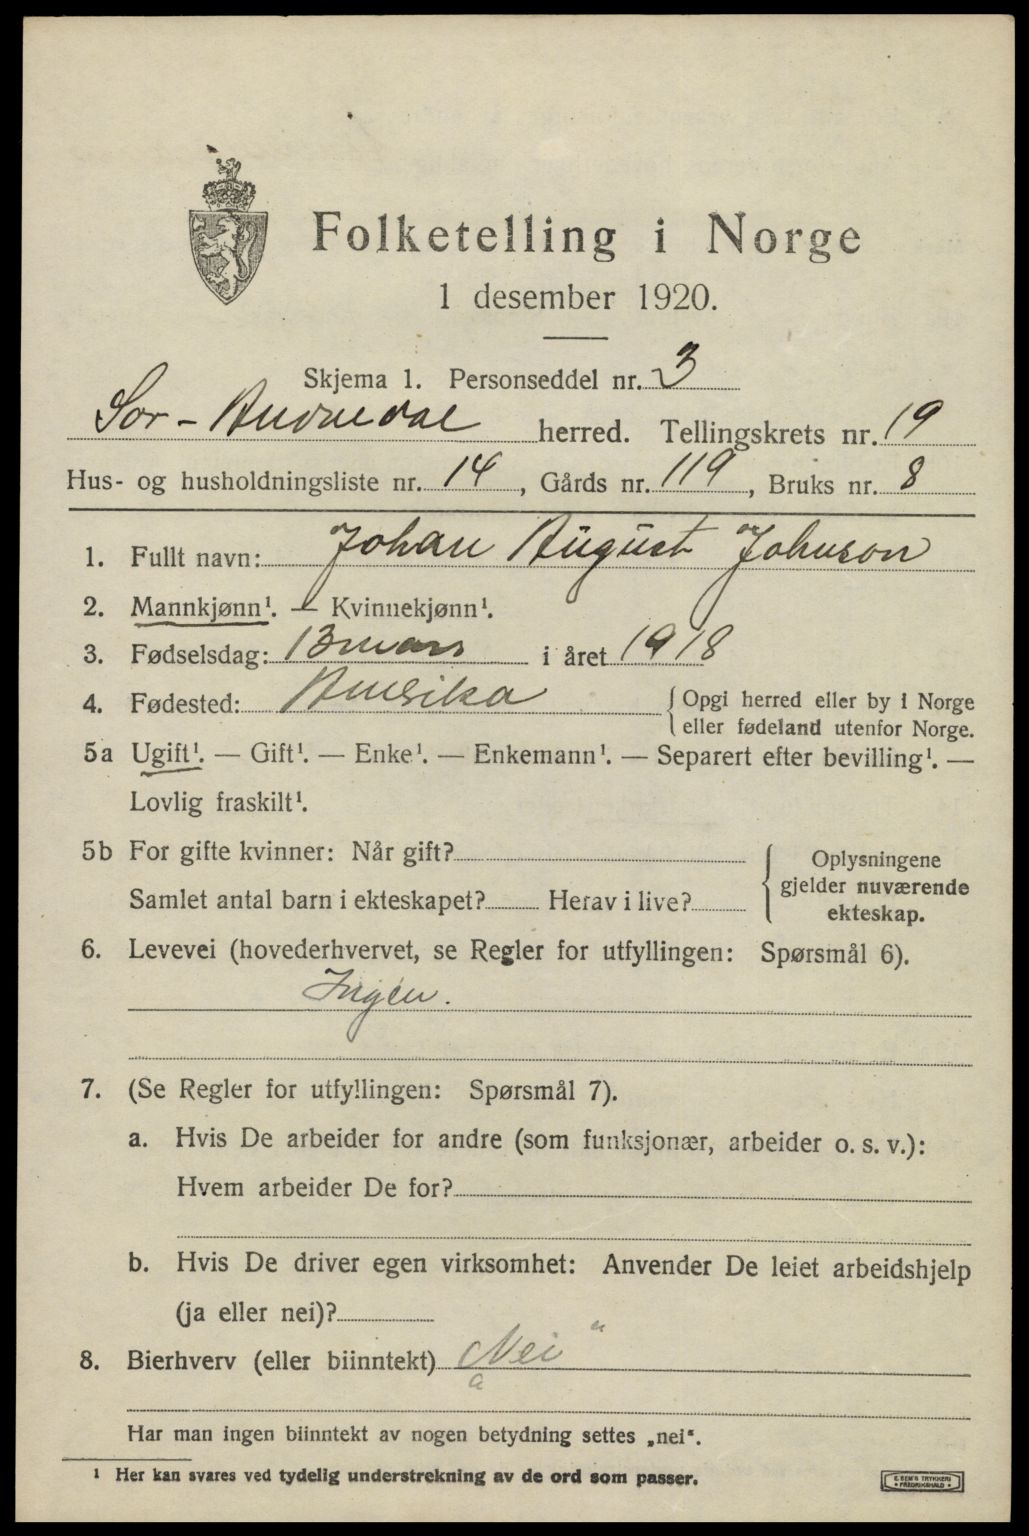 Folketelling i Norge
1 desember 1920.
Skjema 1. Personseddel nr. 3
Sør-Audnedal herred. Tellingskrets nr. 19
Hus- og husholdningsliste nr. 14, Gårds nr. 119, Bruks nr. 8
1. Fullt navn: Johan August Johnson
2. Mannkjønn¹. — Kvinnekjønn¹.
3. Fødselsdag: 13 mars i året 1918
4. Fødested: Amerika { Opgi herred eller by i Norge
{ eller fødeland utenfor Norge.
5a Ugift¹. — Gift¹. — Enke¹. — Enkemann¹. — Separert efter bevilling¹. —
Lovlig fraskilt¹.
5b For gifte kvinner: Når gift?
Samlet antal barn i ekteskapet? Herav i live?
Oplysningene
gjelder nuværende
ekteskap.
6. Levevei (hovederhvervet, se Regler for utfyllingen: Spørsmål 6).
Ingen.
7. (Se Regler for utfyllingen: Spørsmål 7).
a. Hvis De arbeider for andre (som funksjonær, arbeider o. s. v.):
Hvem arbeider De for?
b. Hvis De driver egen virksomhet: Anvender De leiet arbeidshjelp
(ja eller nei)?
8. Bierhverv (eller biinntekt) Nei
Har man ingen biinntekt av nogen betydning settes „nei“.
¹ Her kan svares ved tydelig understrekning av de ord som passer.
E. SEM'S TRYKKERI
• FREDRIKSHALD •